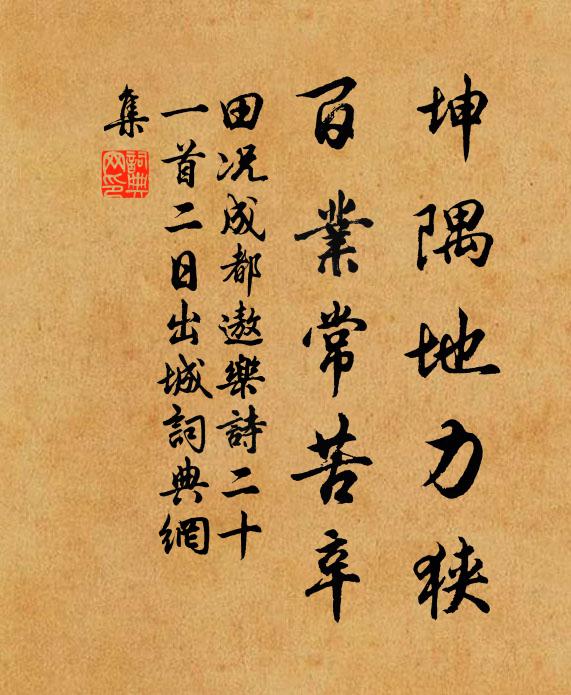 坤隅地力狹
百業常苦辛
田况成都遨樂詩二十
一首二日出城詞典網
集
詞典網印